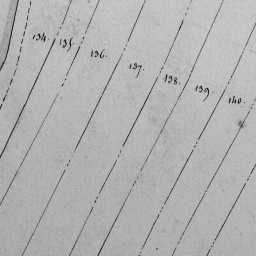 134.
135.
136.
137.
138.
139.
140.